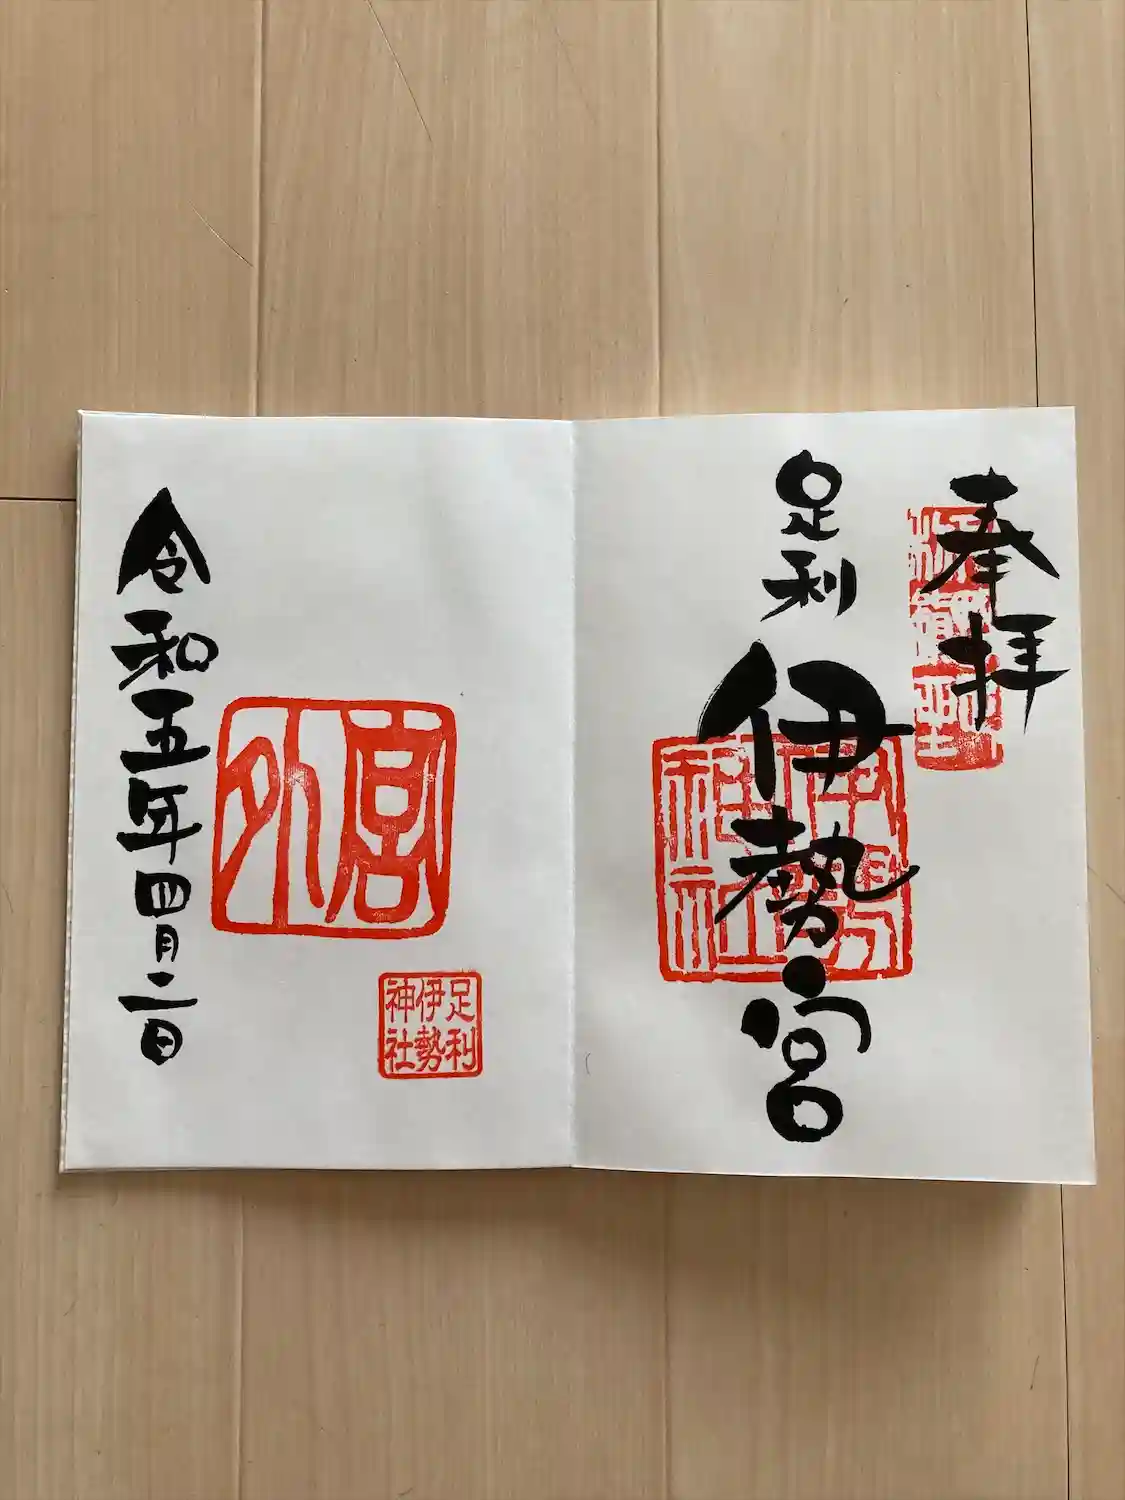 奉拝
足利
伊勢宮
伊勢
神社
宮
外
足利
伊勢
神社
令和五年四月二日